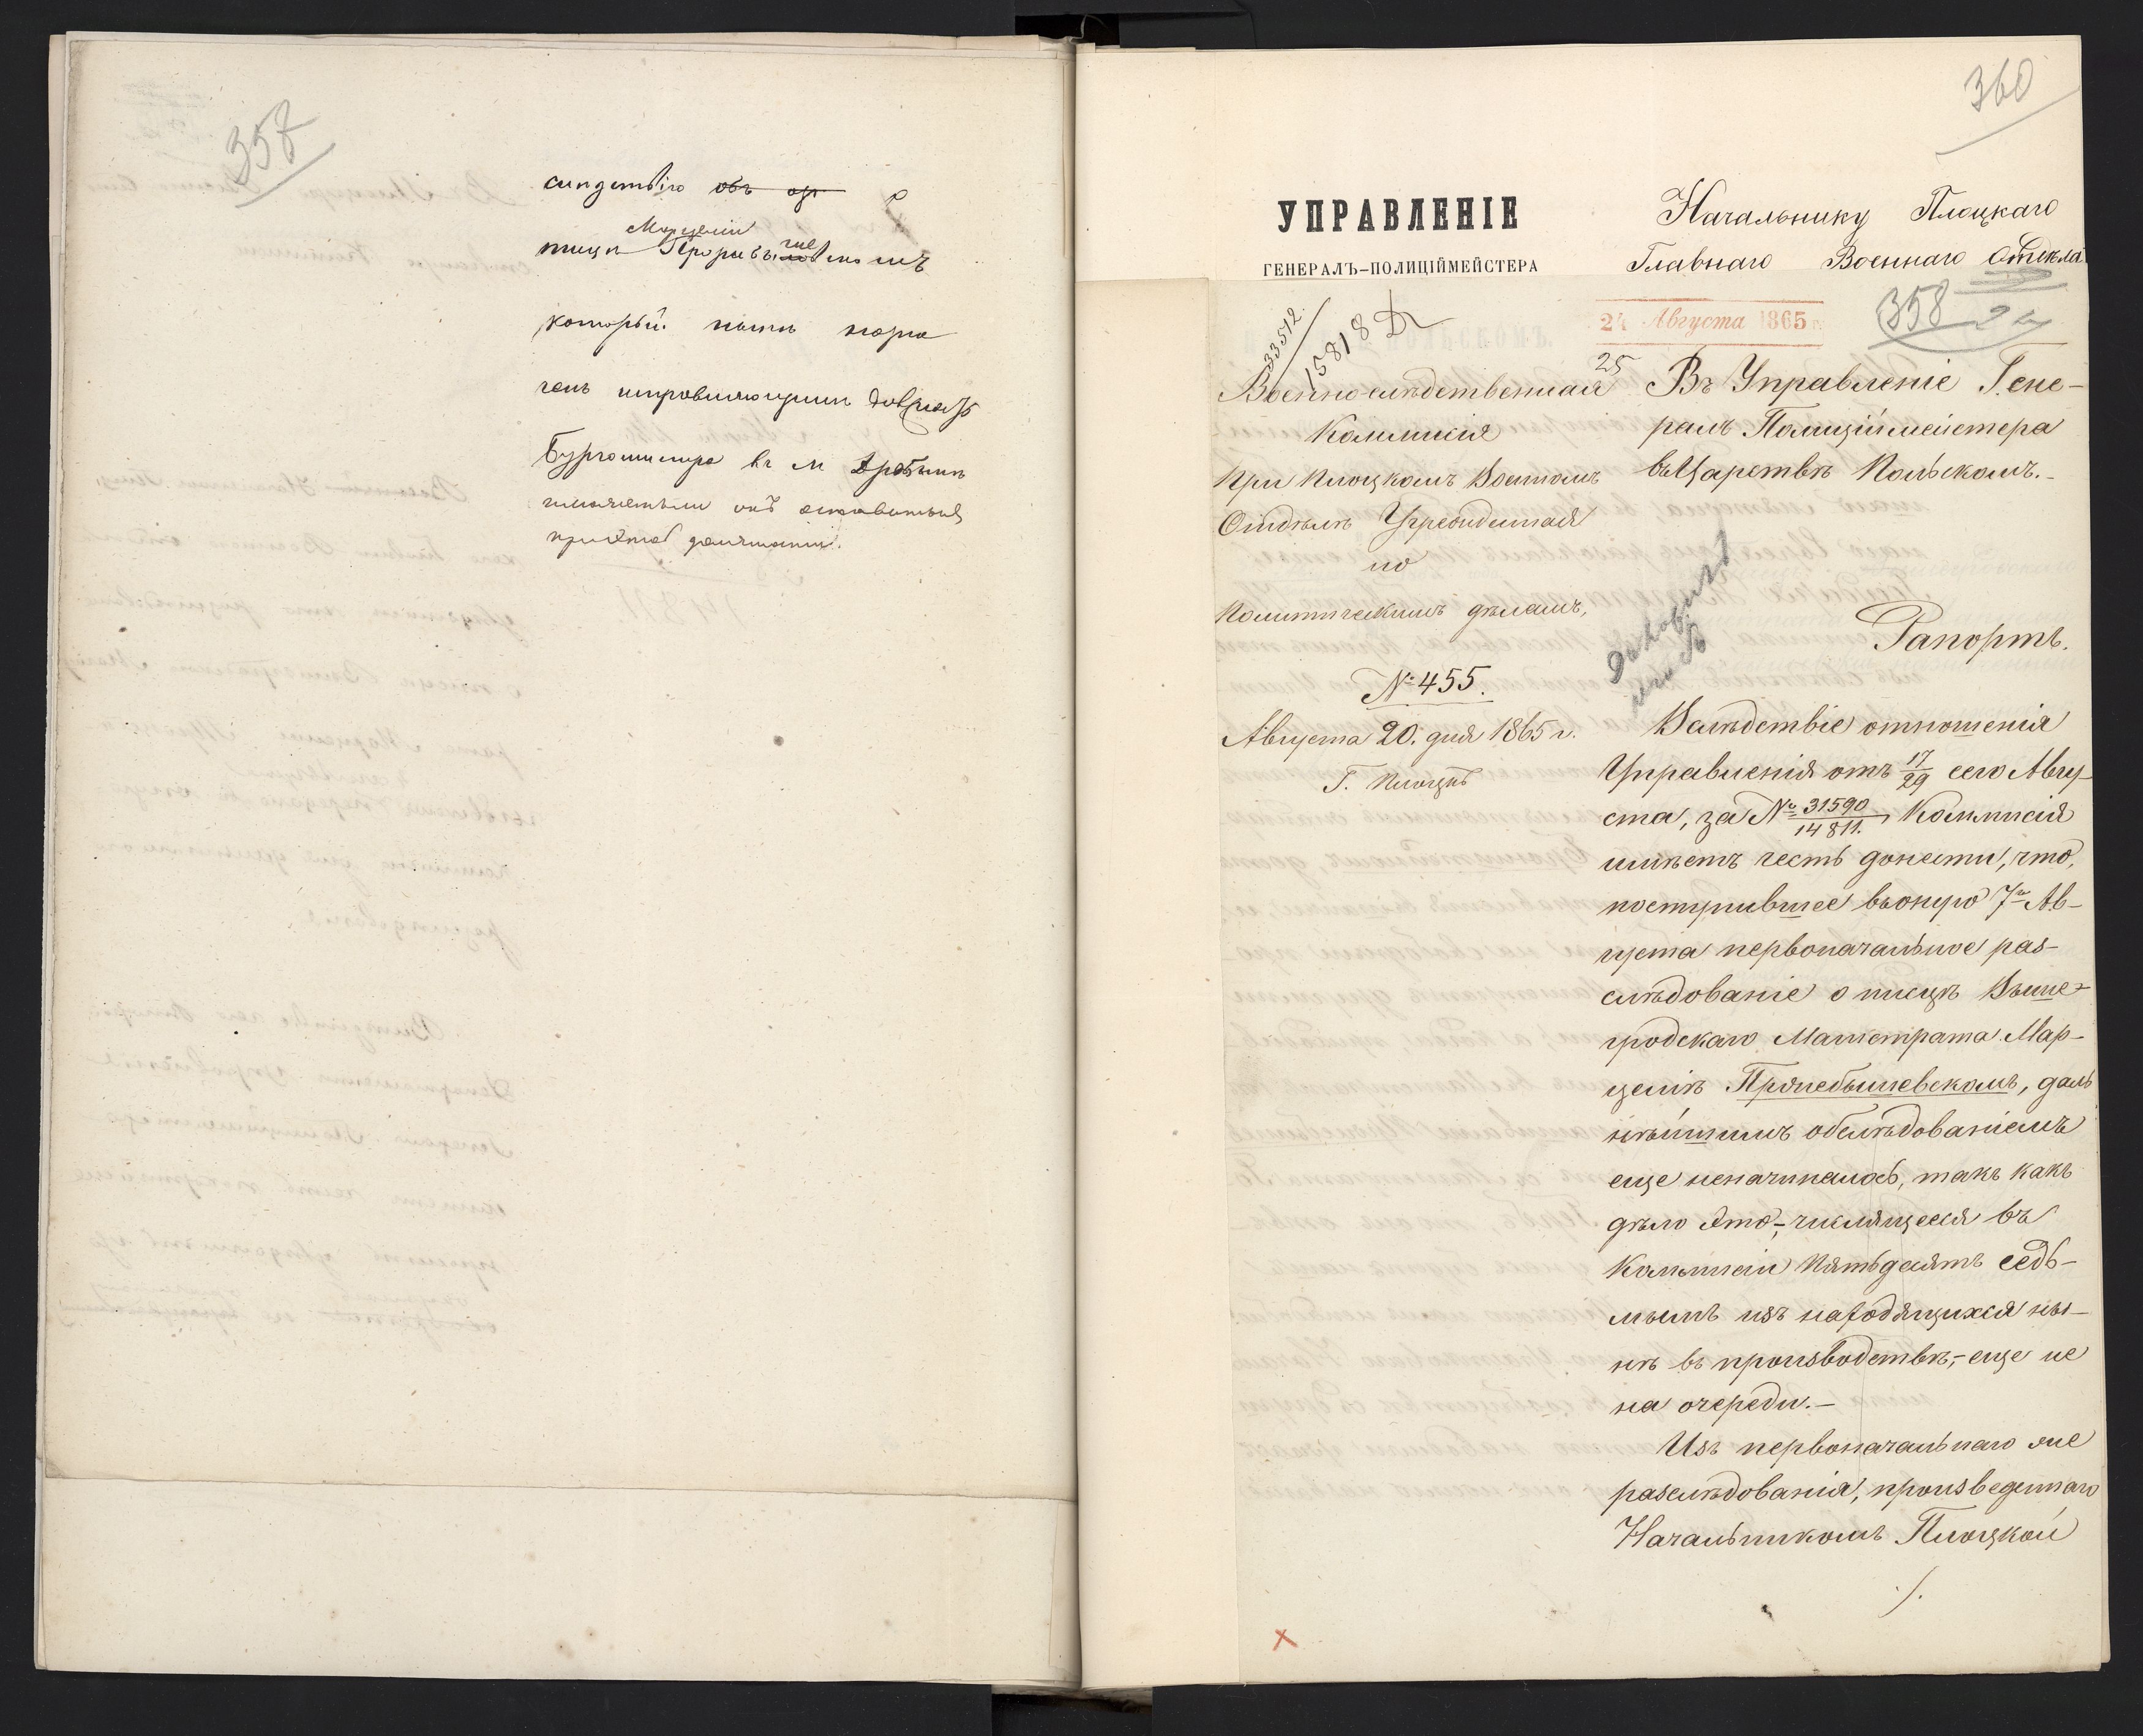 357
слѣдствію объ о
Марцелли
который нынѣ назна
ченъ исправляющимъ должность
Бургомистра въ м
360
УПРАВЛЕНІЕ
ГЕНЕРАЛЪ-ПОЛИЦІЙМЕЙСТЕРА
Начальнику Плоцкаго
Главнаго Военнаго Отдѣла
24 Августа 1865 г.
358
33512
15818
25
Военно-слѣдственная
Коммисія
при Плоцкомъ Военномъ
Отдѣлѣ Учрежденная
по
политическимъ дѣламъ,
№ 455.
Августа 20. дня 1865 г.
Г. Плоцкъ
Въ Управленіе Гене-
ралъ Полиціймейстера
въ Царствѣ Польскомъ.-
Рапортъ.
Вслѣдствіе отношенія
Управленія отъ 17/29 сего Авгу-
ста, за № 31590/14811, Коммисія
имѣетъ честь донести, что,
поступившее въ оную 7го Ав-
густа первоначальное раз-
слѣдованіе о писцѣ Выше-
гродскаго Магистрата Мар-
целіѣ Пржебышевскомъ, даль
нѣйшимъ обслѣдованіемъ
еще неначиналось, такъ какъ
дѣло это,- числящееся въ
Коммисіи пятьдесятъ седь-
мымъ изъ находящихся ны-
нѣ въ производствѣ,- еще не
на очереди.-
Изъ первоначальнаго же
разслѣдованія, произведеннаго
Начальникомъ Плоцкой
./.